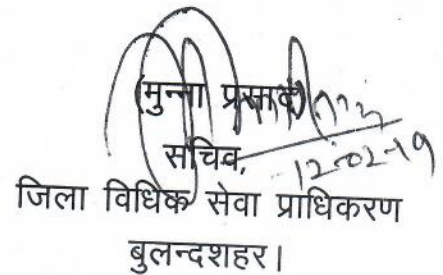 (मुन्ना प्रसाद)
सचिव,
12-02-19
जिला विधिक सेवा प्राधिकरण
बुलन्दशहर।